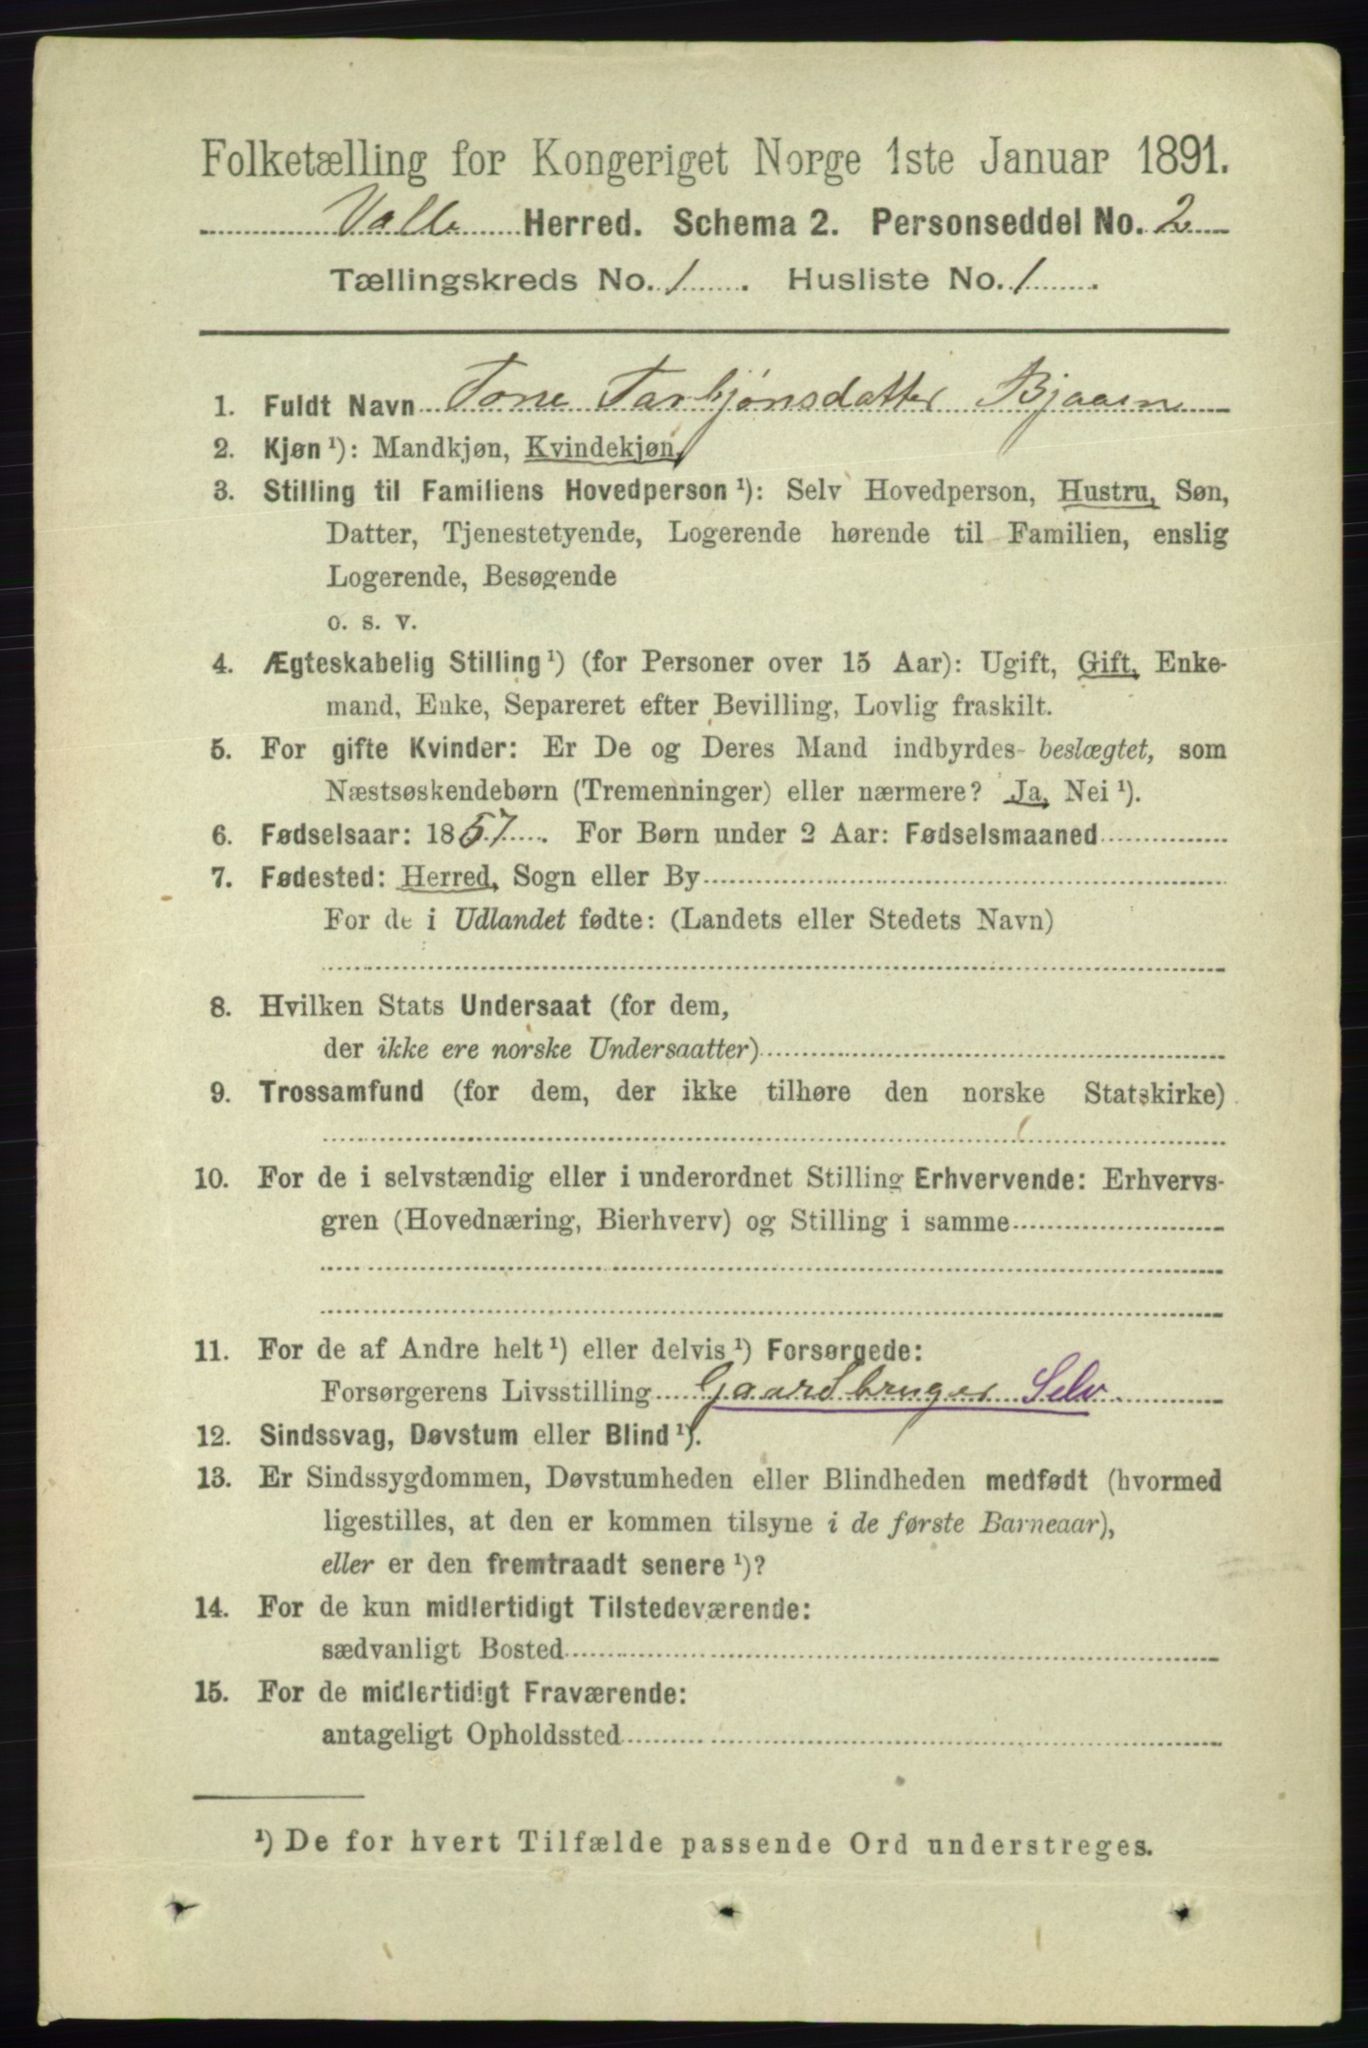 Folketælling for Kongeriget Norge 1ste Januar 1891.
Valle Herred. Schema 2. Personseddel No. 2
Tællingskreds No. 1 . Husliste No. 1 .
1. Fuldt Navn Tone Tarbjønsdatter Bjaaen
2. Kjøn ¹): Mandkjøn, Kvindekjøn,
3. Stilling til Familiens Hovedperson ¹): Selv Hovedperson, Hustru, Søn,
Datter, Tjenestetyende, Logerende hørende til Familien, enslig
Logerende, Besøgende
o. s. v.
4. Ægteskabelig Stilling ¹) (for Personer over 15 Aar): Ugift, Gift, Enke-
mand, Enke, Separeret efter Bevilling, Lovlig fraskilt.
5. For gifte Kvinder: Er De og Deres Mand indbyrdes beslægtet, som
Næstsøskendebørn (Tremenninger) eller nærmere? Ja, Nei ¹).
6. Fødselsaar: 1857. For Børn under 2 Aar: Fødselsmaaned
7. Fødested: Herred, Sogn eller By
For de i Udlandet fødte: (Landets eller Stedets Navn)
8. Hvilken Stats Undersaat (for dem,
der ikke ere norske Undersaatter)
9. Trossamfund (for dem, der ikke tilhøre den norske Statskirke)
10. For de i selvstændig eller i underordnet Stilling Erhvervende: Erhvervs-
gren (Hovednæring, Bierhverv) og Stilling i samme
11. For de af Andre helt ¹) eller delvis ¹) Forsørgede:
Forsørgerens Livsstilling Gaardbruger Selv
12. Sindssvag, Døvstum eller Blind ¹).
13. Er Sindssygdommen, Døvstumheden eller Blindheden medfødt (hvormed
ligestilles, at den er kommen tilsyne i de første Barneaar),
eller er den fremtraadt senere ¹)?
14. For de kun midlertidigt Tilstedeværende:
sædvanligt Bosted
15. For de midlertidigt Fraværende:
antageligt Opholdssted
¹) De for hvert Tilfælde passende Ord understreges.